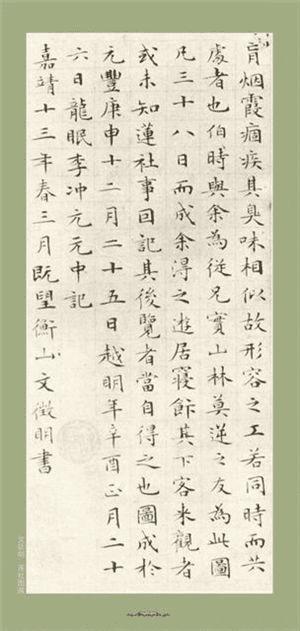 肓烟霞痼疾其臭味相似故形容之工若同时而共
處者也伯時與余為從兄實山林莫逆之友為此圖
凡三十八日而成余得之遊居寢飰其下客來觀者
或未知蓮社事因記其後覽者當自得之也圖成於
元豐庚申十二月二十五日越明年辛酉正月二十
六日龍眠李沖元元中記
嘉靖十三年春三月既望衡山文徵明書